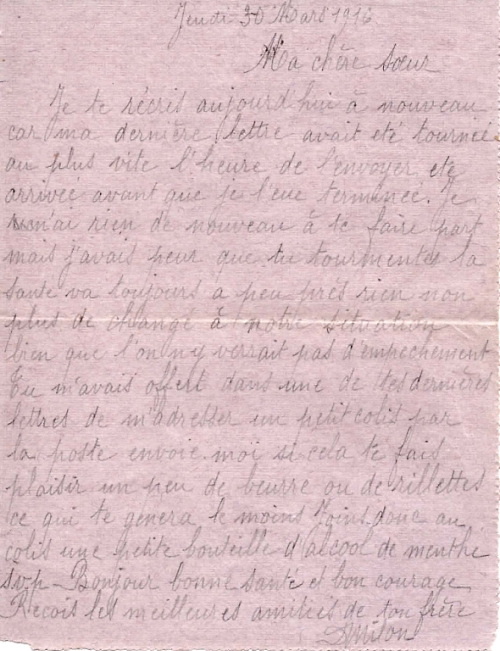 Jeudi 30 Mars 1916
Ma chère sœur
Je te récris aujourd'hui à nouveau
car ma dernière lettre avait eté tournée
au plus vite l'heure de l'envoyer eté
arrivée avant que je l'eue terminée. Je
n'ai rien de nouveau à te faire part
mais j'avais peur que tu tourmentes la
santé va toujours a peu près rien non
plus de changé à notre situation
bien que l'on n'y verrait pas d'empechement
Tu m'avais offert dans une de tes dernières
lettres de m'adresser un petit colis par
la poste envoie moi si cela te fais
plaisir un peu de beurre ou de rillettes
ce qui te genera le moins Joins donc au
colis une petite bouteille d'alcool de menthe
s.v.p - Bonjour bonne santé et bon courage
Recois les meilleures amitiés de ton frère